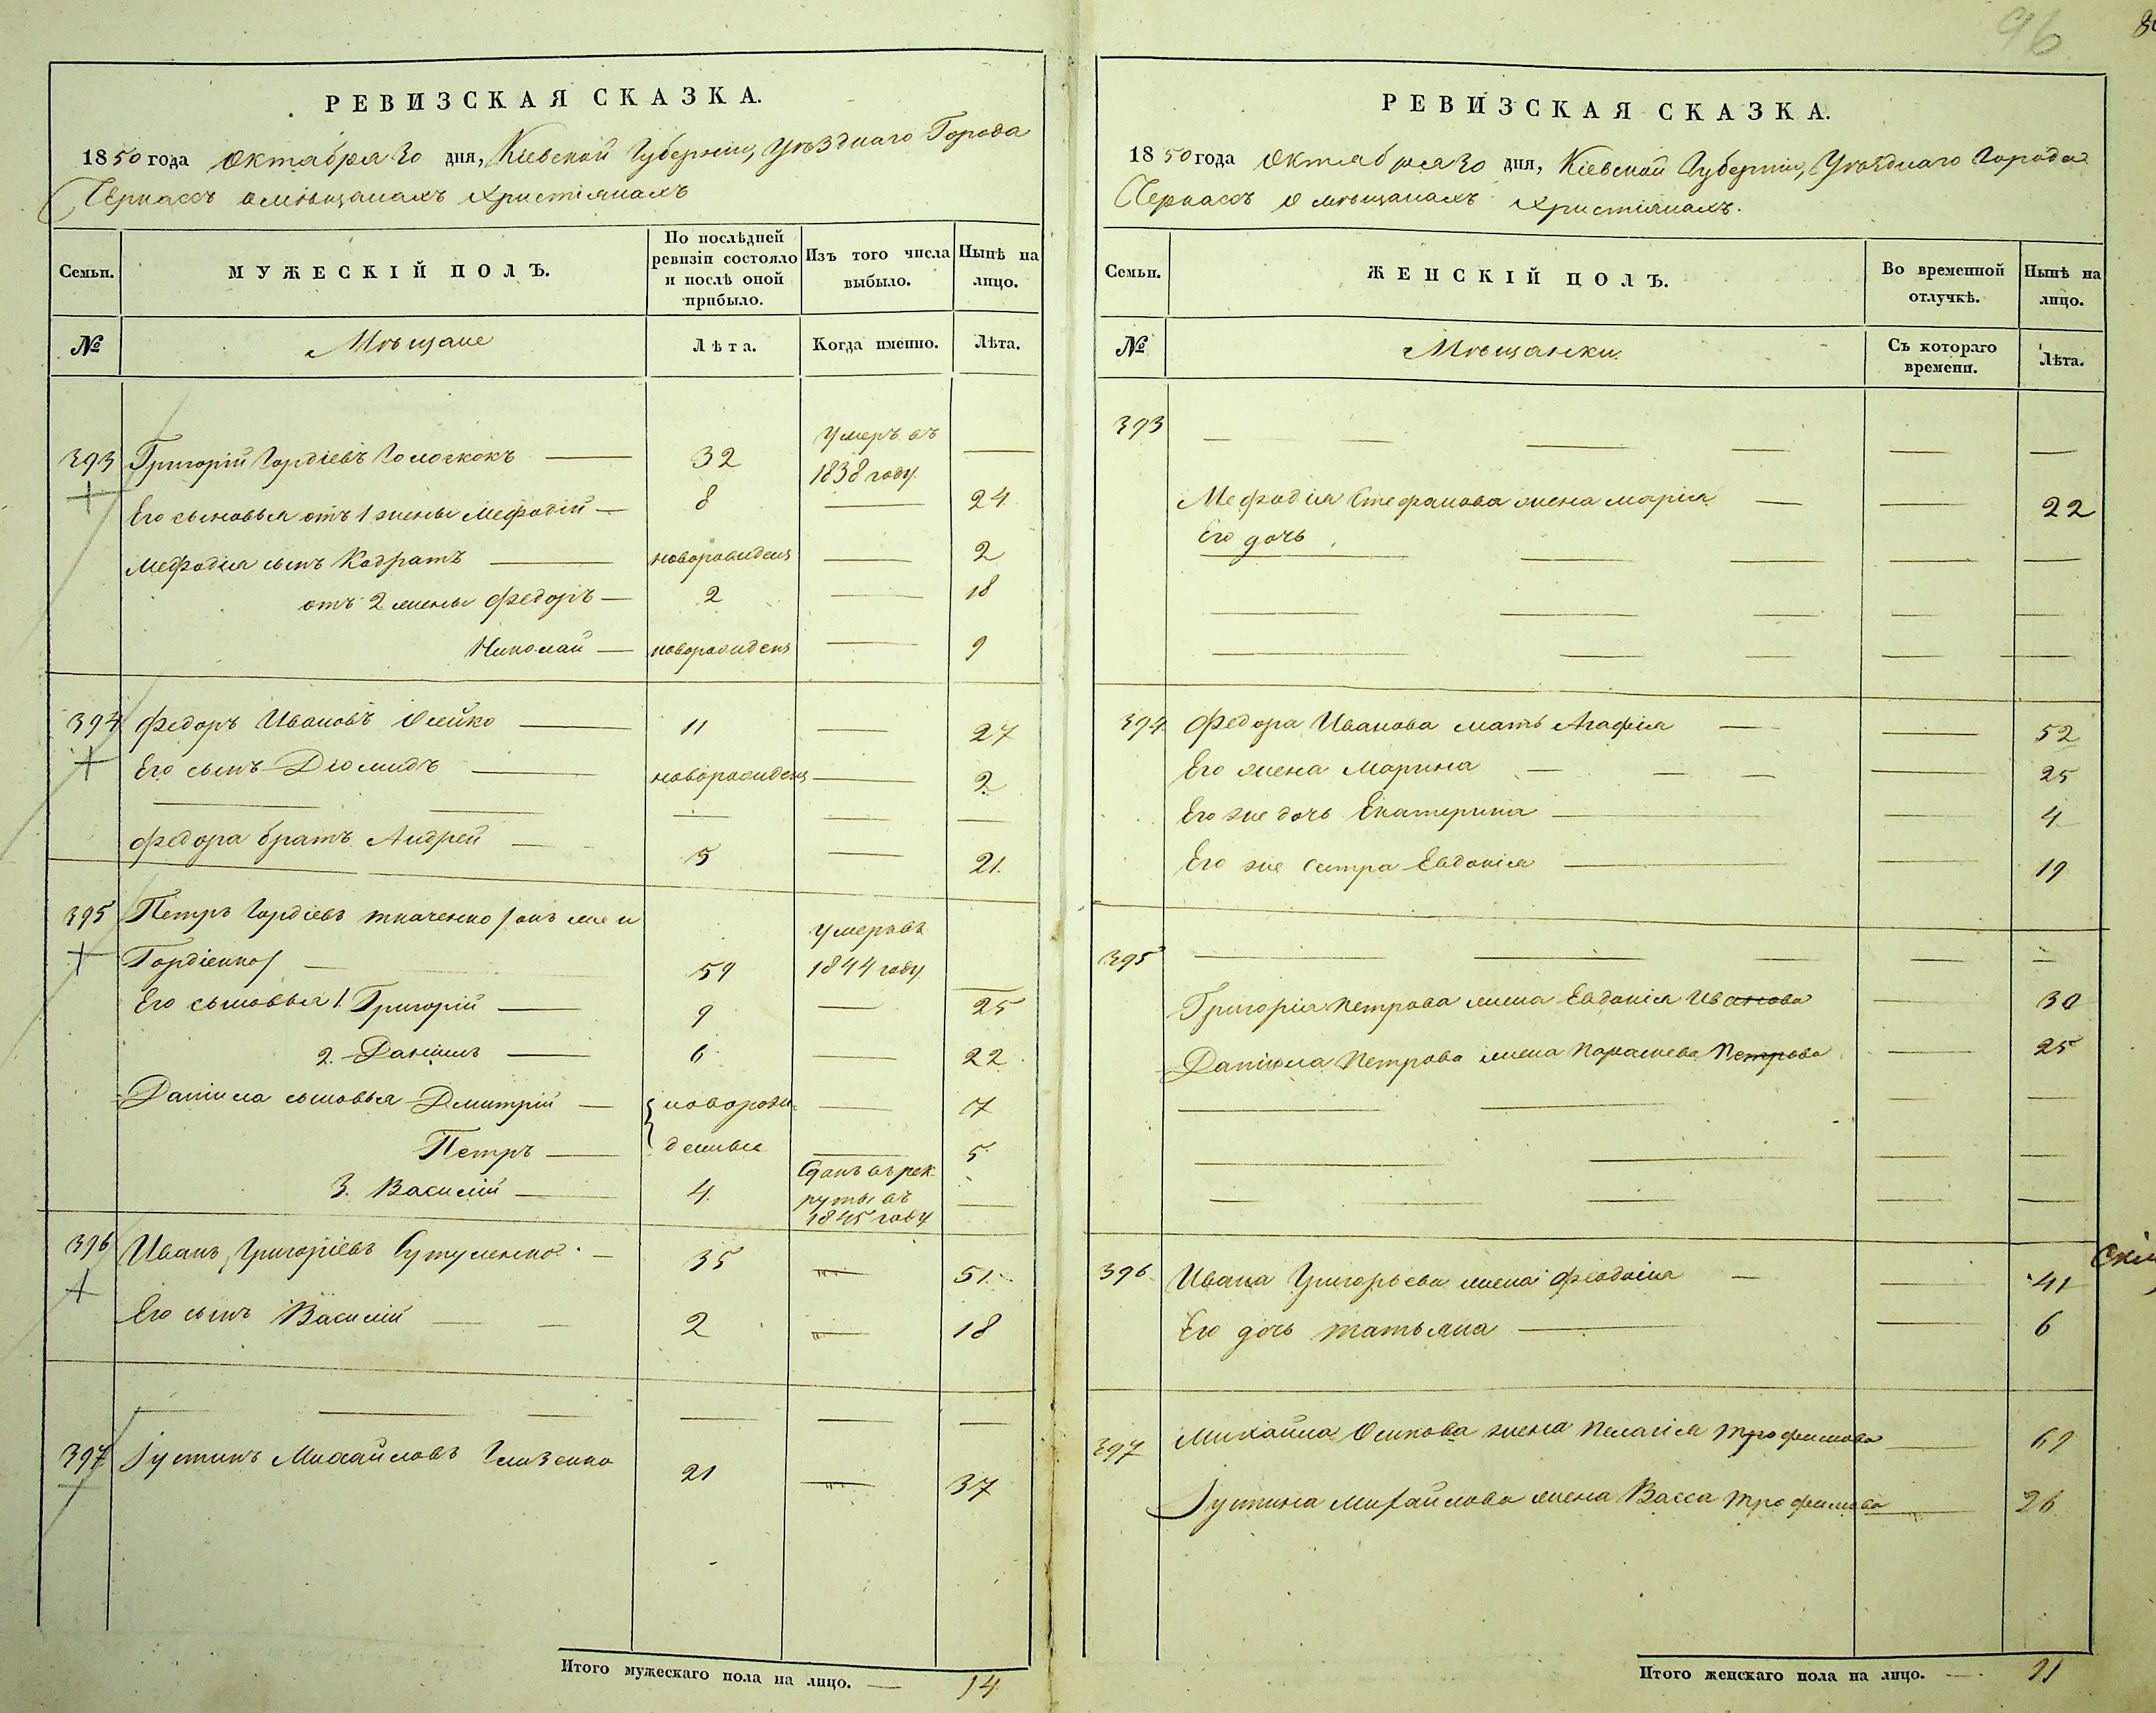 96
РЕВИЗСКАЯ СКАЗКА.
1850 года Октября 30 дня, Кіевской Губерніи, Уѣзднаго Города
Черкассъ о мѣщанахъ Христіянахъ
Семьи.
МУЖЕСКІЙ ПОЛЪ.
По послѣдней ревизіи состояло и послѣ оной прибыло.
Изъ того числа выбыло.
Нынѣ на лицо.
№
Мѣщане
Лѣта.
Когда именно.
Лѣта.
393 Григорій Гордіевъ — 32 Умеръ въ 1838 году —
Его сыновья отъ 1 жены Мефодій — 8 — 24
Мефодія сынъ Кодратъ — новорожденъ — 2
отъ 2 жены Федоръ — 2 — 18
Николай — новорожденъ — 9
394 Федоръ Ивановъ Олейко — 11 — 27
Его сынъ Діомидъ — новорожденъ — 2
— — — — —
Федора братъ Андрей — 5 — 21.
395 Петръ Гордіевъ Ткаченко /онъ же и
Гордіенко/ — 59 Умеръ въ 1844 году —
Его сыновья 1. Григорій — 9 — 25
2. Даніилъ — 6 — 22
Даніила сыновья Дмитрій — новорож- — 7
Петръ — денные — 5
3. Василій — 4 Сданъ въ рекруты въ 1845 году —
396 Иванъ Григоріевъ Сутуленко — 35 — 51
Его сынъ Василій — 2 — 18
— — — — — —
397 Іустинъ Михайловъ 21 — 37
Итого мужескаго пола на лицо. — 14
РЕВИЗСКАЯ СКАЗКА.
1850 года Октября 30 дня, Кіевской Губерніи, Уѣзднаго Города
Черкассъ о мѣщанахъ Христіянахъ.
Семьи.
ЖЕНСКІЙ ПОЛЪ.
Во временной отлучкѣ.
Нынѣ на лицо.
№
Мѣщанки.
Съ котораго времени.
Лѣта.
393 — — — — —
Мефодія Стефанова жена Марія — — 22
Его дочь
— — — — —
— — — — —
— — — — —
394. Федора Иванова мать Агафія — — 52
Его жена Марина — — — — 25
Его же дочь Екатерина — — 4
Его же сестра Евдокія — — 19
395 — — — — —
Григорія Петрова жена Евдокія Иванова — 30
Даніила Петрова жена Параскева Петрова — 25
— — — —
— — — —
— — — —
396 Ивана Григорьева жена Феодосія — — 41
Его дочь Татьяна — — 6
397 Михайла Осипова жена Пелагія Трофимова — 69
Іустина Михайлова жена Васса Трофимова — 26
Итого женскаго пола на лицо. — 11